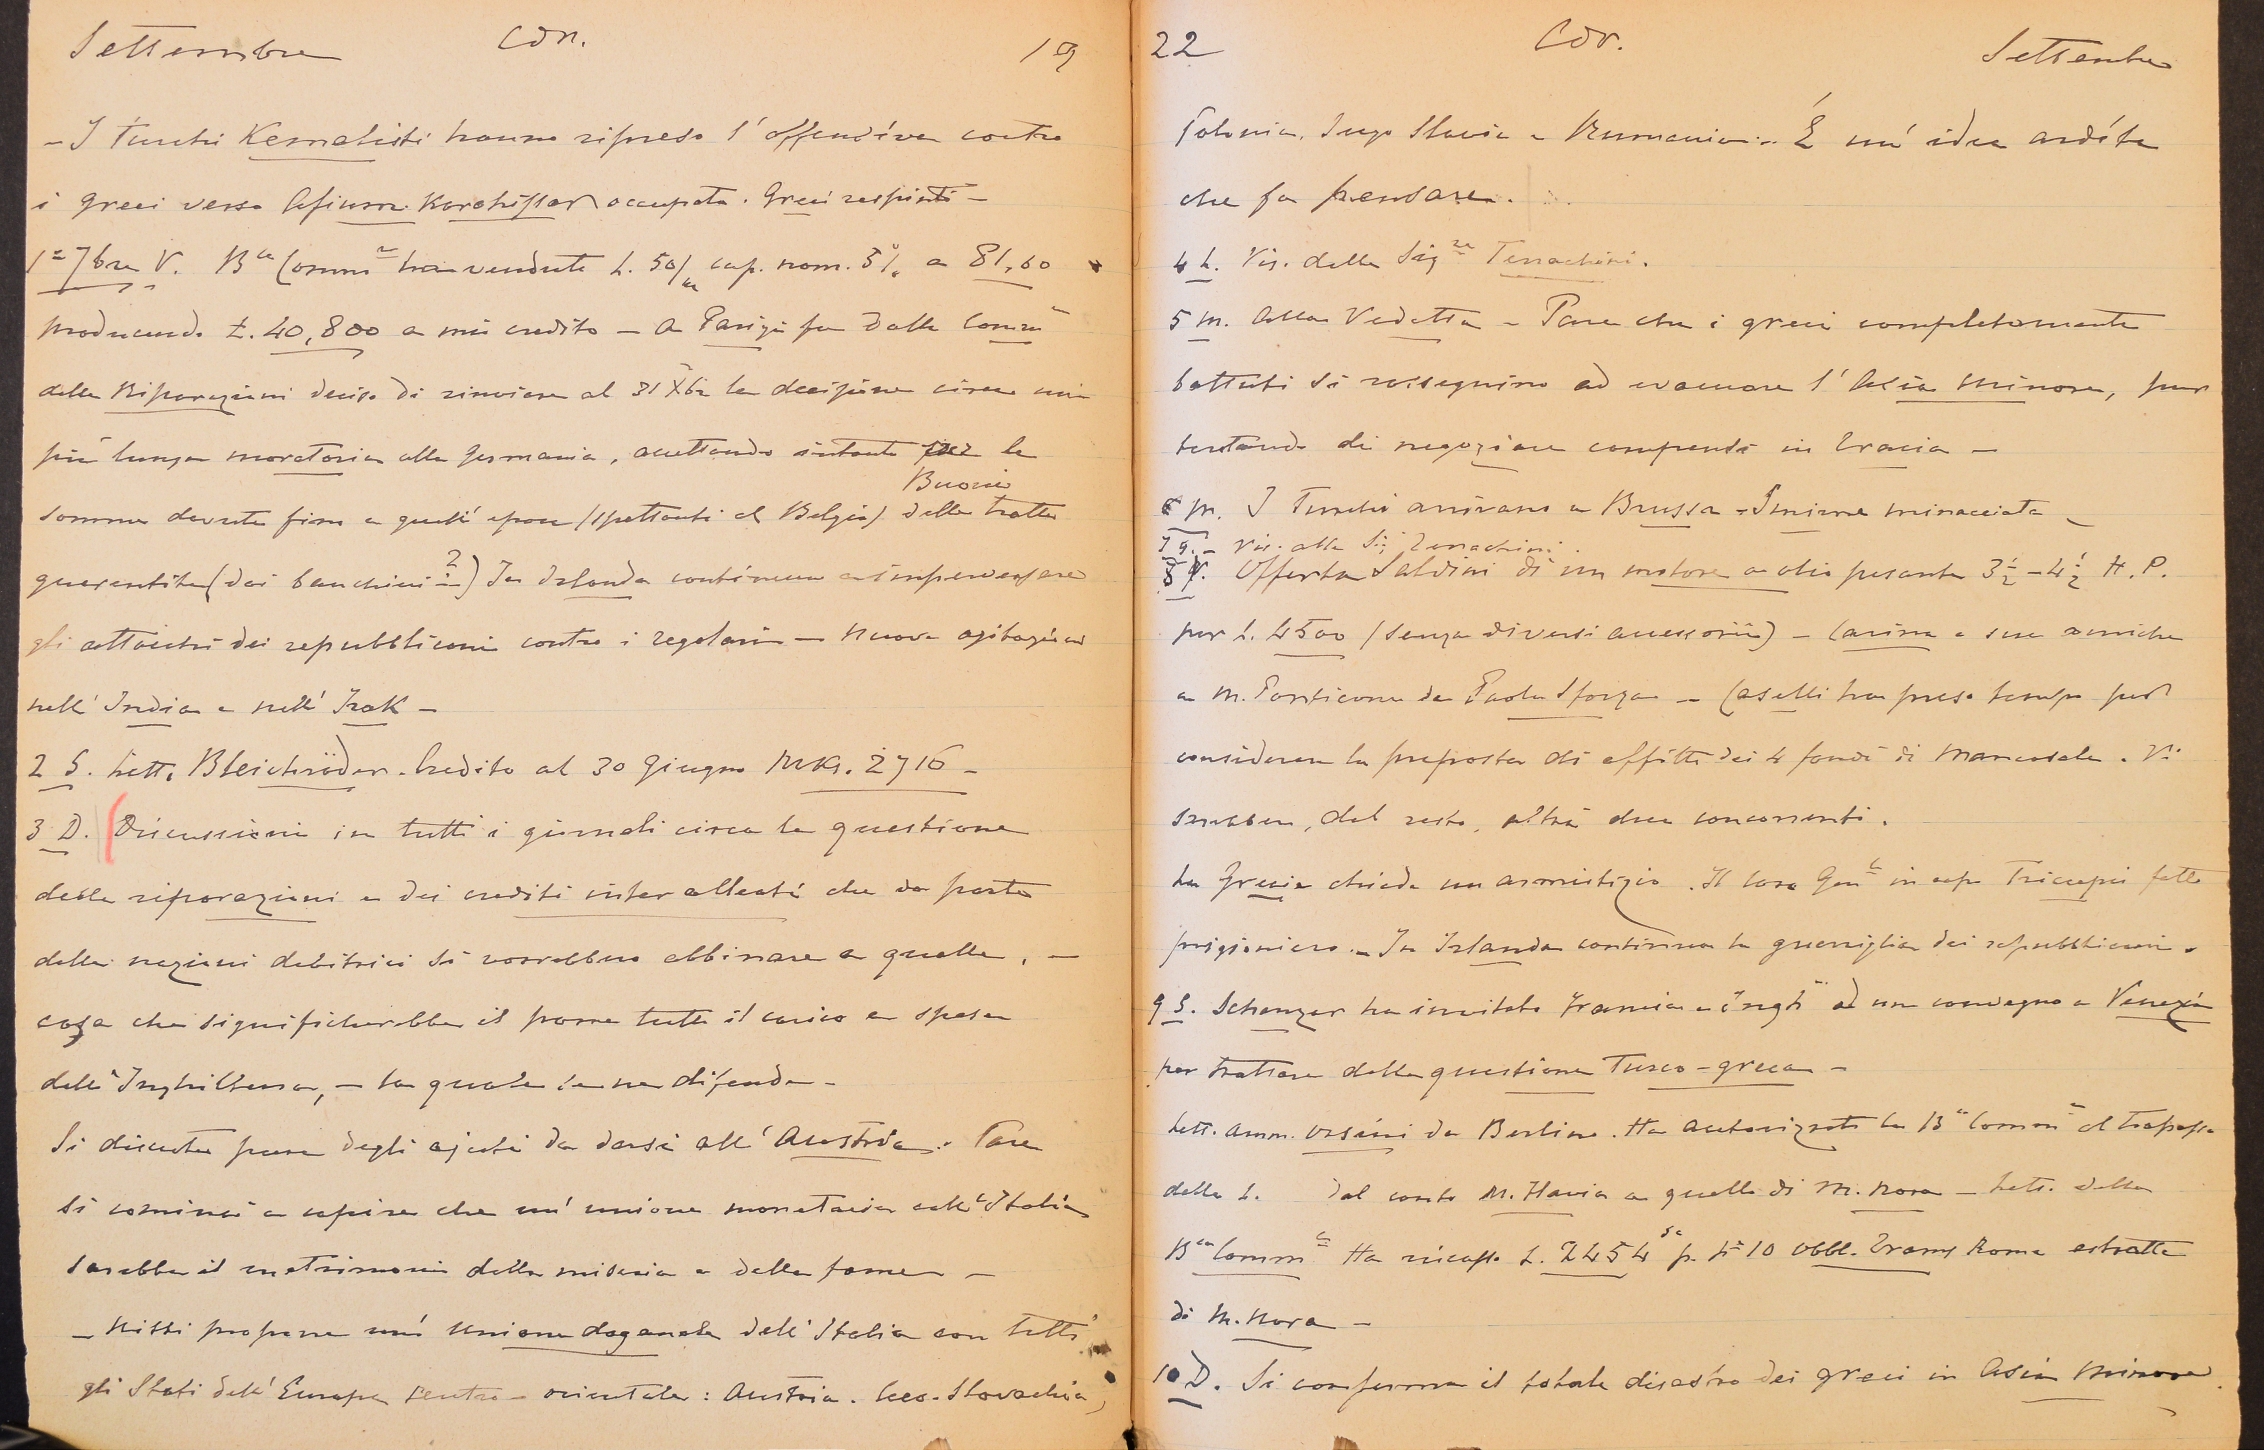 Settembre Cdn. 19
- I Turchi Kemalisti hanno ripreso l'offensiva contro
i greci verso Afium Karahissar occupata. Greci respinti -
1° 7bre V. Bca Comm le ha vendute L. 50/m cap. nom. 5% a 81,60
producendo £. 40,800 a mio credito - A Parigi fu dalla Comm
delle Riparazioni deciso di rinviare al 31 Xbre la decisione circa una
più lunga moratoria alla Germania, accettando intanto per le
Buoni
somme dovute fino a quell'epoca (spettanti al Belgio) delle tratte
guarentite (dai banchieri?) In Irlanda continuano a imperversare
gli attacchi dei repubblicani contro i regolari - Nuove agitazioni
nell'India e nell'Irak -
2 S. Lett. Bleichröder. Credito al 30 Giugno MKs. 2716 -
3 D. Discussioni in tutti i giornali circa la questione
delle riparazioni e dei crediti interalleati che da parte
delle nazioni debitrici si vorrebbero abbinare a quelle, -
cosa che significherebbe il porre tutto il carico a spese
dell'Inghilterra, - la quale se ne difende -
Si discute pure degli ajuti da darsi all'Austria. Pare
si cominci a capire che un'unione monetaria coll'Italia
sarebbe il matrimonio della miseria e della fame -
- Nitti propone un'unione doganale dell'Italia con tutti
gli Stati dell'Europa centro-orientale: Austria. Ceco-Slovachia,
22 Cdr. Settembre
Polonia, Jugo Slavia e Rumania. - È un'idea ardita
che fa pensare.
4 L. Vis. della Sigra Terrachini.
5 M. Alla Vedetta - Pare che i greci completamente
battuti si rassegnino ad evacuare l'Asia Minore, pur
tentando di negoziare compensi in Tracia -
6 M. I Turchi arrivano a Brussa - Smirne minacciata
7 G. - Vis. alla Sig Terrachini.
8 V. Offerta Saldini di un motore a olio pesante 3½ - 4½ H.P.
per L. 4500 (senza diversi accessorii) - Carina e sue amiche
a M. Porticone da Paola Sforza - Caselli ha preso tempo per
considerare la proposta di affitto dei 4 fondi di Mancasale. Vi
sarebbero, del resto, altri due concorrenti.
La Grecia chiede un armistizio. Il loro Gen in capo Tricupis fatto
prigioniero. - In Irlanda continua la guerriglia dei repubblicani.
9 S. Schanzer ha invitato Francia e Inghra ad un convegno a Venezia
per trattare della questione Turco-greca -
Lett. amm. Orsini da Berlino. Ha autorizzato la Bca Comm al trapasso
delle L. dal conto M. Flavia a quello di M. Nora - Lett. della
Bca Comm Ha incass. L. 2454 p. N° 10 Obbl. Trams Roma estratte
di M. Nora -
10 D. Si conferma il totale disastro dei greci in Asia Minore.